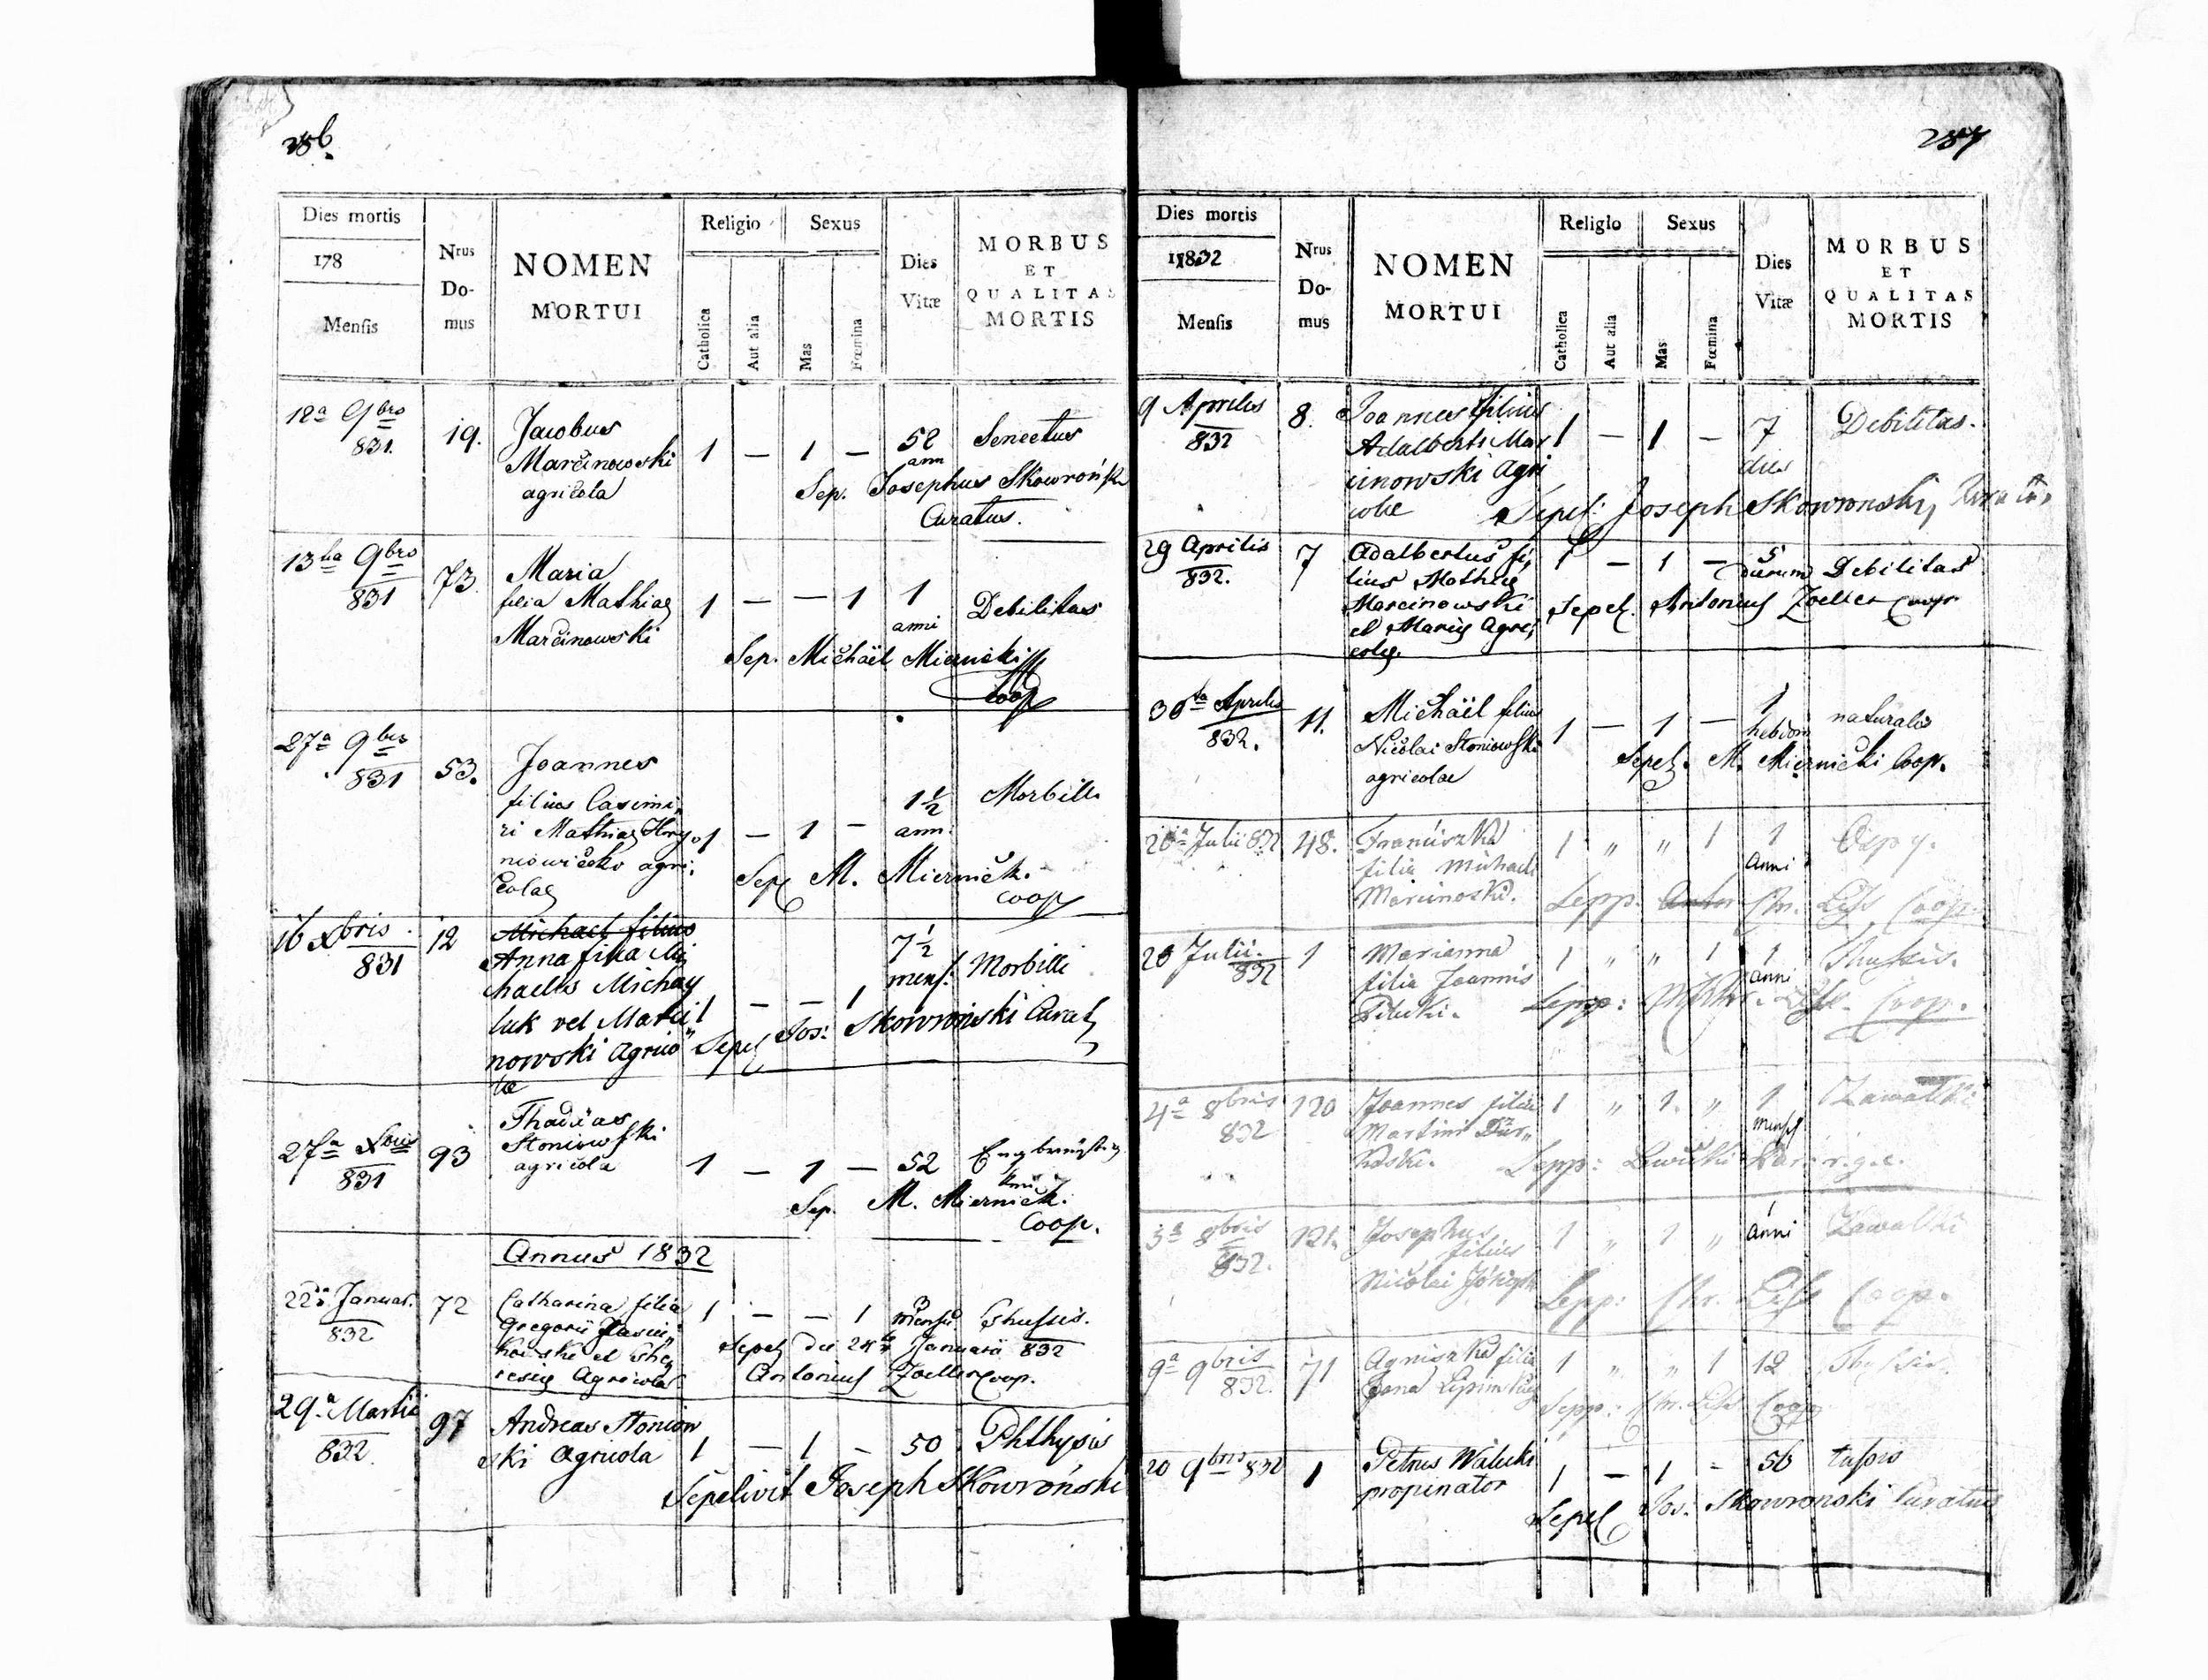 286.
Dies mortis
178
Mensis
Nrus
Do-
mus
NOMEN
MORTUI
Religio
Catholica
Aut alia
Sexus
Mas
Fœmina
Dies
Vitæ
MORBUS
ET
QUALITAS
MORTIS
12a 9bro
831.
19.
Jacobus
Marcinowski
agricola
1 — 1 —
52
ann
Senectus
Sep. Josephus Skowrońsk
Curatus.
13tia 9bro
831
73.
Maria
filia Mathiae
Marcinowski
1 — — 1
1
anni
Debilitas
Sep. Michaël Miernicki
Coop
27a 9bro
831
53.
Joannes
filius Casimi
ri Mathiae
agri
colae
1 — 1 —
1½
ann.
Morbilli
Sepel M. Miernick.
coop
16 Xbris.
831
12
Michael filius
Anna filia Mi
chaelis Michay
luk vel Marci
nowski Agrico
lae
1 — — 1
7½
mens.
Morbilli
Sepel Jos: Skowronski Curat
27a Xbris
831
93
Thadeas
Stoniowski
agricola
1 — 1 — 52
Sep. M. Miernick.
Coop.
Annus 1832
22da Januar.
832
72
Catharina filia
Gregorii
kowski et The
resiae Agricolae
1 — — 1
3
mensi
Sepel die 24ta Januarii 832
Antonius Zoeller Coop.
29.a Martii
832.
97
Andreas Stoniow
ski Agricola
1 — 1 – 50.
Phthysis
Sepelivit Joseph Skowroński
287
Dies mortis
1832
Mensis
Nrus
Do-
mus
NOMEN
MORTUI
Religio
Catholica
Aut alia
Sexus
Mas
Fœmina
Dies
Vitæ
MORBUS
ET
QUALITAS
MORTIS
9 Aprilis
832
8.
Joannes filius
Adalberti Mar
cinowski Agri
colae
1 — 1 —
7
dies
Debilitas.
Sepel: Joseph Skowronski
29 Aprilis
832.
7
Adalbertus fi,
lius Mathiae
Marcinowski
et Mariae Agri,
colae.
1 — 1 —
5
dierum
Debilitas
Sepel. Antonius Zoeller Coop
30ta Aprilis
832.
11.
Michaël filius
Nicolai Stoniowski
agricolae
1 — 1 —
1
hebdom
naturalis
Sepel. M. Miernicki Coop.
20a Julii 832
48.
Franciszka
filia Michaeli
Marcinoski.
1 „ „ 1
1
Anni
Ospy.
Sepp. Chr. Liss Coop.
20 Julii.
832
1
Marianna
filia Joannis
1 „ „ 1
1
anni
Sepp: Liss Coop.
4a 8bris
832
120
Joannes filius
Martini
1 „ 1. „
1
mens
Sepp: Lewicki
5a 8bris
832.
121.
Josephus
filius
Nicolai
1 „ 1 „
anni
Sepp: Chr. Liss Coop.
9a 9bris
832.
71
Agniszka filia
1 „ „ 1 12
Sepp: Chr. Liss Coop
20 9bris 832
1
Petrus Walucki
propinator
1 — 1 – 56
tussis
Sepel Jos: Skowronski Curatus